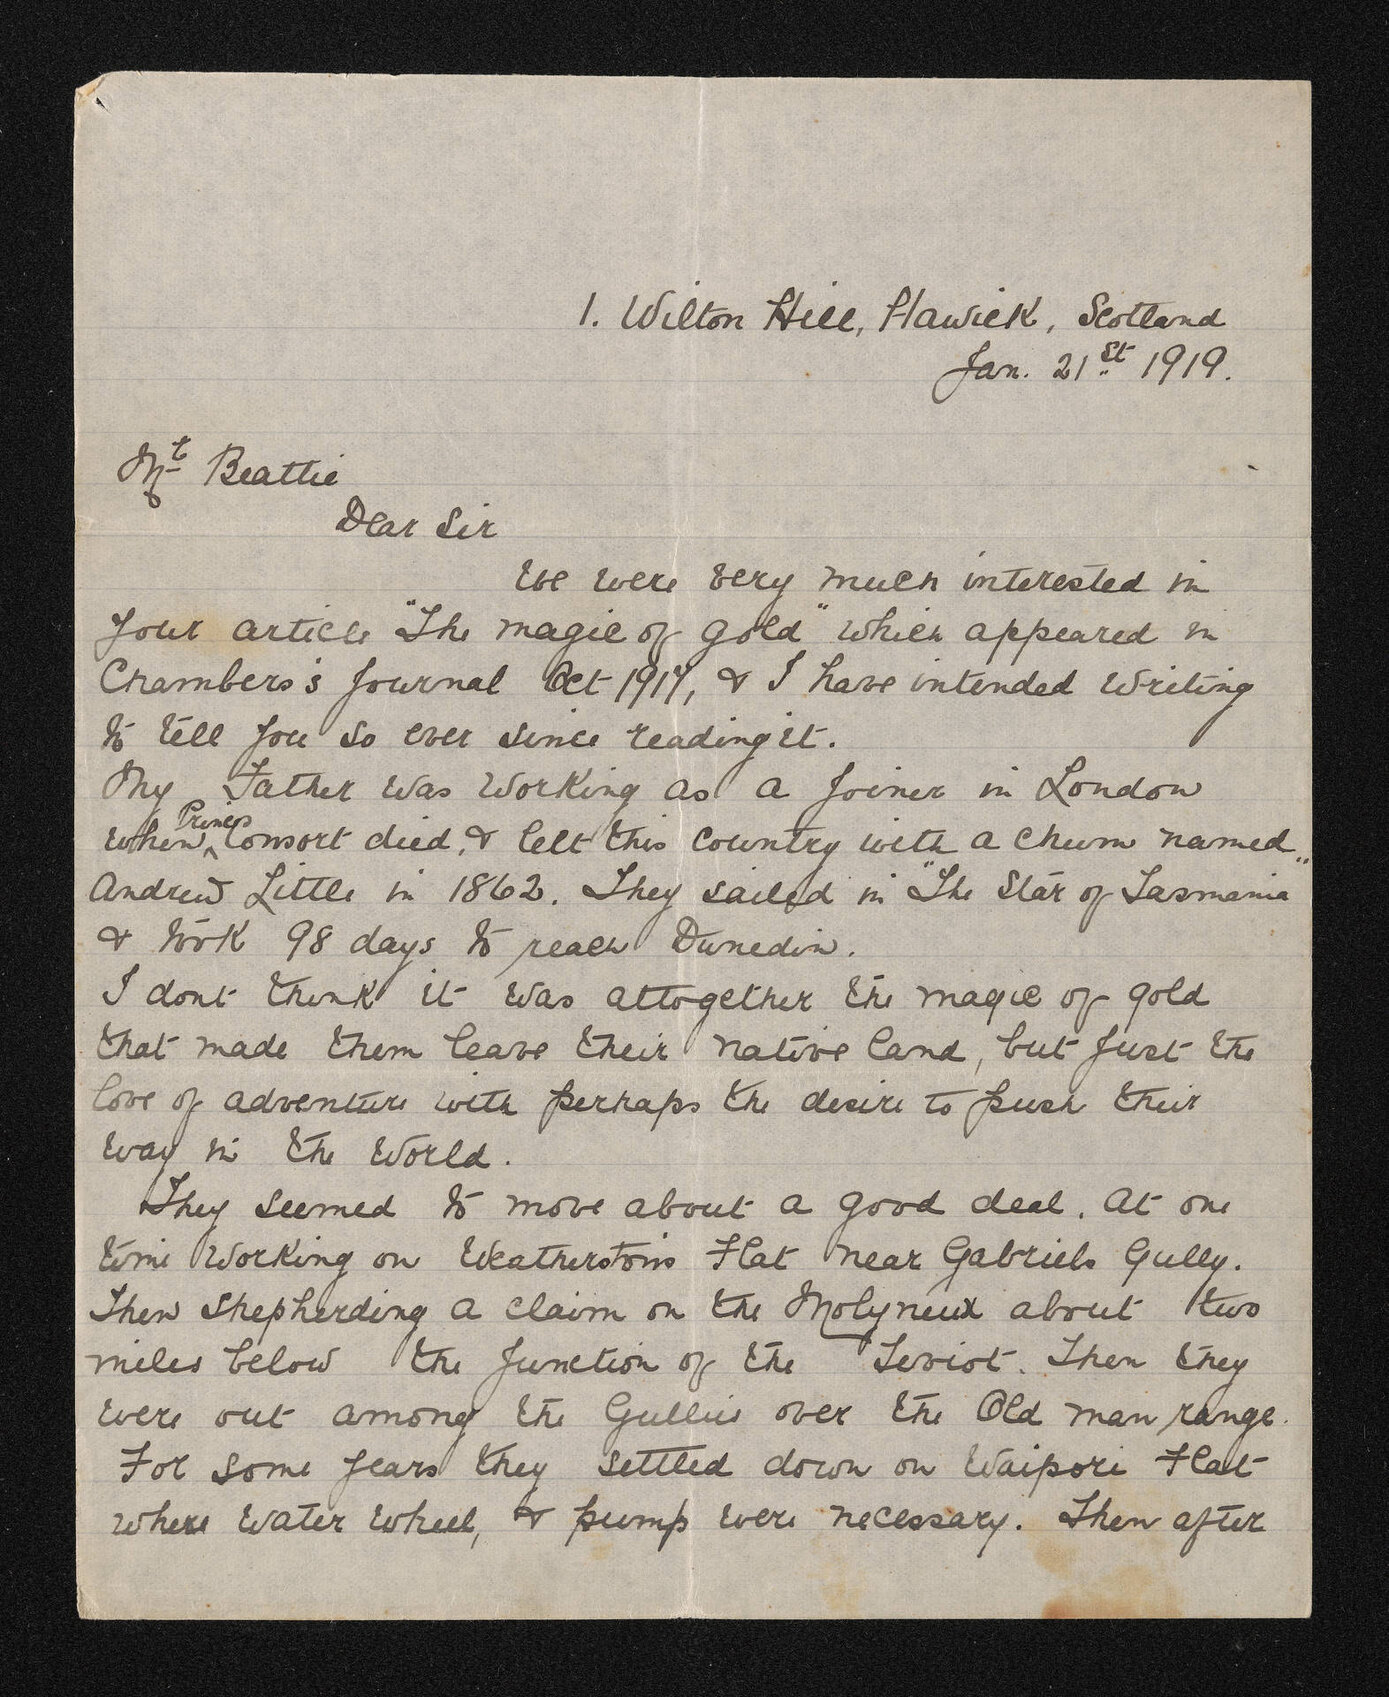 1. Wilton Hill, Hawick, Scotland
Jan. 21st 1919.
Mr Beattie
Dear Sir
We were very much interested in
your article "The magic of gold" which appeared in
Chambers's Journal Oct 1917, & I have intended writing
to tell you so ever since reading it.
My Father was working as a joiner in London
when Prince Consort died, & left this country with a chum named
Andrew Little in 1862. They sailed in "The Star of Tasmania"
& took 98 days to reach Dunedin.
I dont think it was altogether the magic of gold
that made them leave their native land, but just the
love of adventure with perhaps the desire to push their
way in the world.
They seemed to move about a good deal. At one
time working on Weatherston's Flat near Gabriels Gully.
Then shepherding a claim on the Molyneux about two
miles below the junction of the Teviot. Then they
were out among the Gullies over the Old man range.
For some years they settled down on Waipori Flat
where water wheel, & pump were necessary. Then after